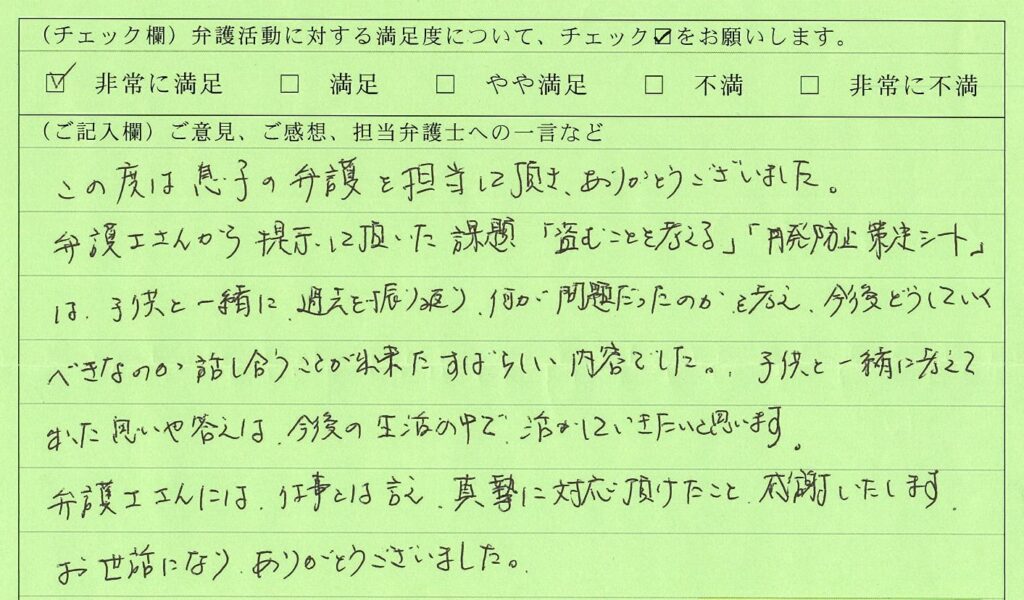 (チェック欄)弁護活動に対する満足度について、チェック☑をお願いします。
☑ 非常に満足 □ 満足 □ やや満足 □ 不満 □ 非常に不満
(ご記入欄)ご意見、ご感想、担当弁護士への一言など
この度は息子の弁護を担当して頂き、ありがとうございました。
弁護士さんから提示して頂いた課題「盗むことを考える」「再発防止策定シート」
は、子供と一緒に、過去を振り返り、何が問題だったのかを考え、今後どうしていく
べきなのか話し合うことが出来たすばらしい内容でした。、子供と一緒に考えて
出た思いや答えは、今後の生活の中で、活かしていきたいと思います。
弁護士さんには、仕事とは言え、真摯に対応頂けたこと、感謝いたします。
お世話になり、ありがとうございました。